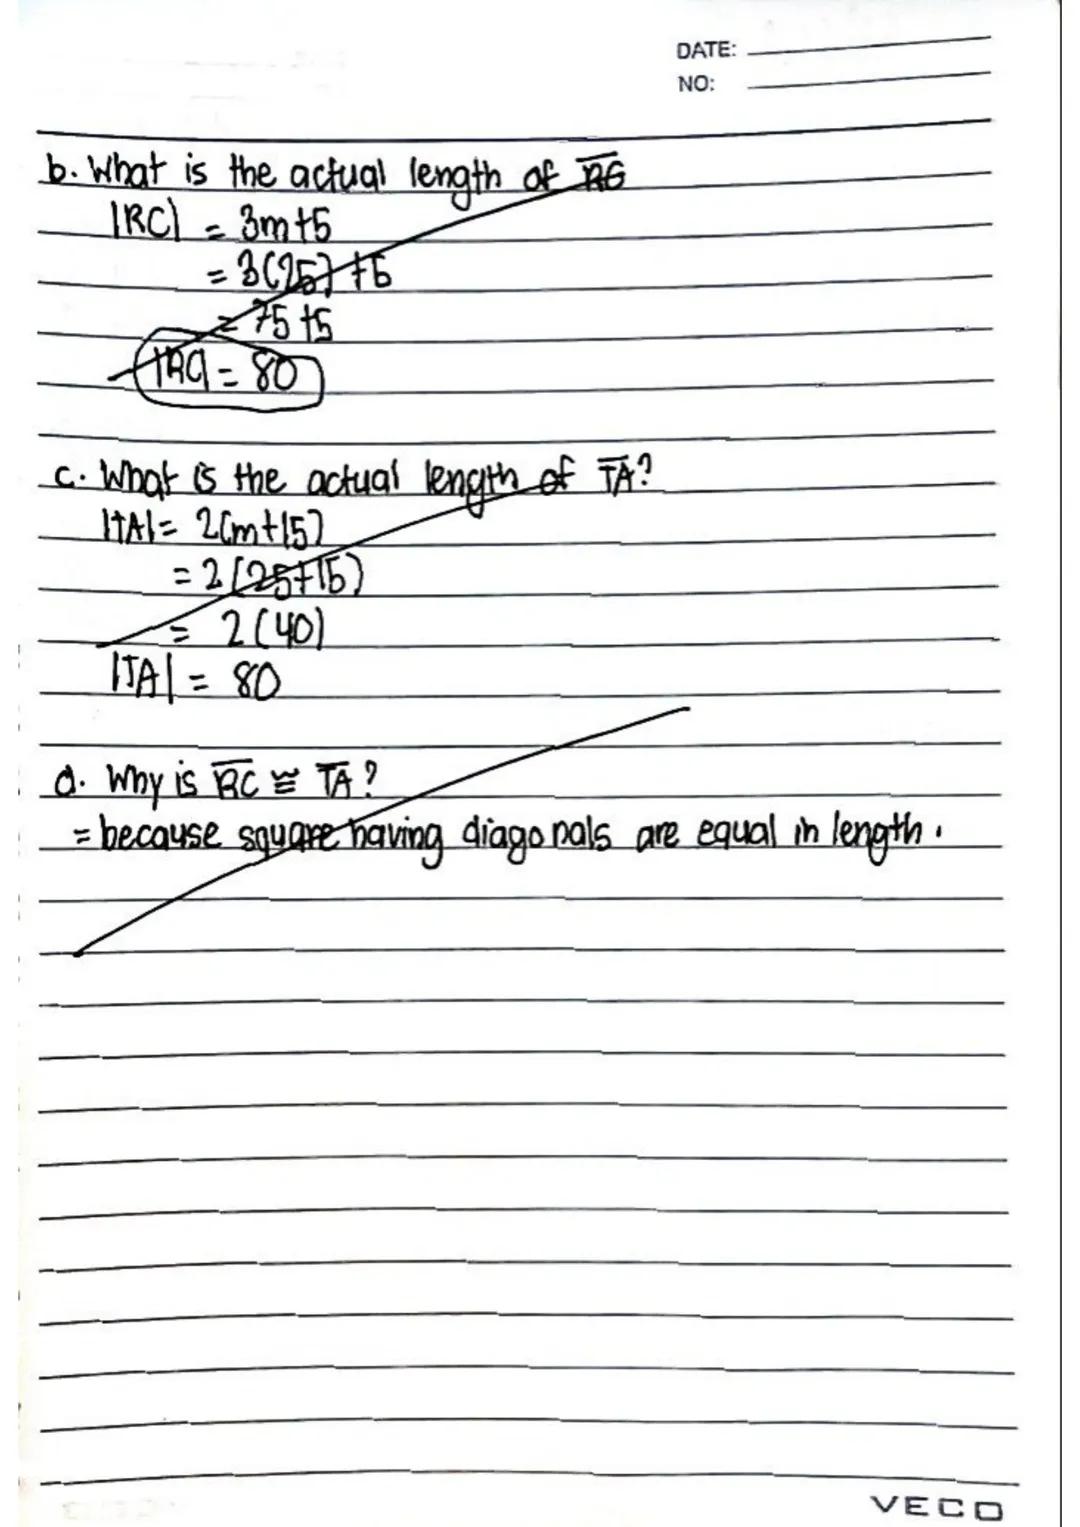 DATE:
NO:
b. What is the actual length of RG
|RC| = 3m+5
= 3(25) +5
= 75+5
|RC| = 80
c. What is the actual length of TA?
|TA| = 2(m+15)
= 2(25+15)
= 2(40)
|TA| = 80
d. Why is RC ≅ TA?
= because square having diagonals are equal in length.
VECO